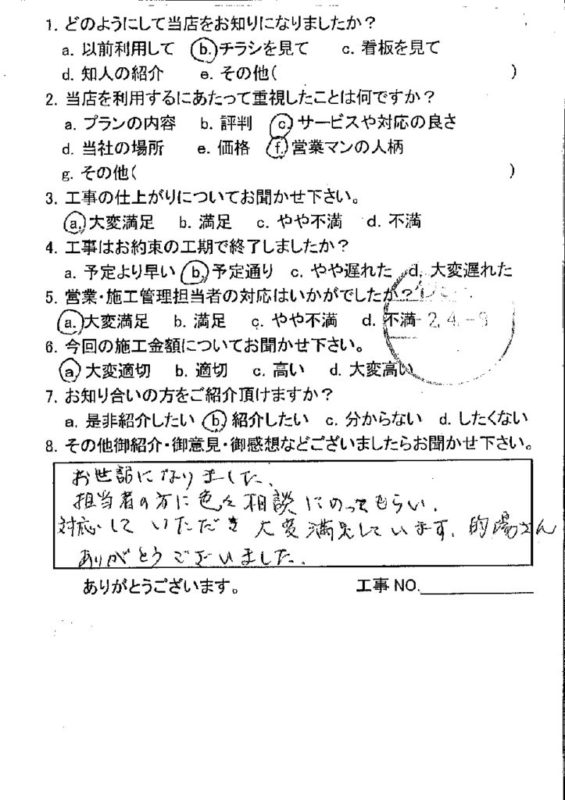 1. どのようにして当店をお知りになりましたか?
a. 以前利用して b. チラシを見て c. 看板を見て
d. 知人の紹介 e. その他( )
2. 当店を利用するにあたって重視したことは何ですか?
a. プランの内容 b. 評判 c. サービスや対応の良さ
d. 当社の場所 e. 価格 f. 営業マンの人柄
g. その他( )
3. 工事の仕上がりについてお聞かせ下さい。
a. 大変満足 b. 満足 c. やや不満 d. 不満
4. 工事はお約束の工期で終了しましたか?
a. 予定より早い b. 予定通り c. やや遅れた d. 大変遅れた
5. 営業・施工管理担当者の対応はいかがでしたか?
a. 大変満足 b. 満足 c. やや不満 d. 不満
2.4.-9
6. 今回の施工金額についてお聞かせ下さい。
a. 大変適切 b. 適切 c. 高い d. 大変高い
7. お知り合いの方をご紹介頂けますか?
a. 是非紹介したい b. 紹介したい c. 分からない d. したくない
8. その他御紹介・御意見・御感想などございましたらお聞かせ下さい。
お世話になりました、
担当者の方に色々相談にのってもらい、
対応していただき大変満足しています、的場さん
ありがとうございました、
ありがとうございます。 工事NO.